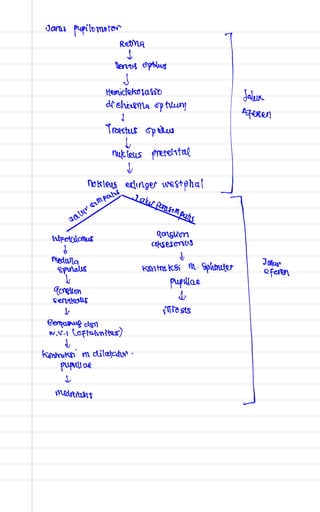 Jaras pupilomotor
Retina
Nervus optikus
Hemidekusasio
di chiasma optikum
Traktus optikus
nukleus pretektal
nukleus edinger westphal
Jalur
Aferen
Jalur simpatis
Jalur parasimpatis
hipotalamus
medulla
spinalis
ganglion
servikalis
Bergabung dgn
N.V.1 (oftalmikus)
Kontraksi m dilatator
pupillae
midriasis
ganglion
aksesorius
Kontraksi m. Sphincter
pupillae
miosis
Jalur
eferen